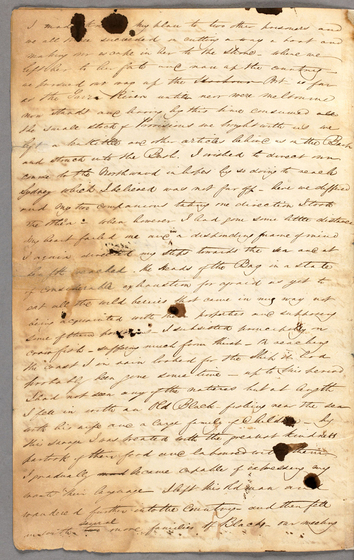 I made my plan to two other prisoners and
we all three succeeded in cutting away a boat and
making our escape in her to the Shore where we
left her to her fate and ran up the country
we proceeded on our way up the Port as far
as the Yarra River near where Melbourne
now stands and having by this time consumed all
the small stock of Provisions we brought with us we
left a kettle and other articles behind us in the Bush
and struck into the Bush, I wished to direct our
course to the Northward in hopes by so doing to reach
Sydney which I believed was not far off - here we differed
and my two companions taking one direction I took
the other - when however I had gone some little distance
my heart failed me and a desponding frame of mind
I again directed my steps towards the sea and at
length reached the Heads of the Bay in a state
of considerable exhaustion for afraid as yet to
eat all the wild berries that came in my way not
being acquainted with their properties and supposing
some of them I subsisted principally on
crawfish - suffering much from thirst - On reaching
the coast I in vain looked for the Ship it had
probably been gone some time - up to this period
I had not seen any of the natives but at length
I fell in with an Old Black fishing near the sea
with his wife and a large family of Children - By
this savage I was treated with the greatest kindness
partook of their food and laboured with them
I gradually became capable of expressing my
wants in their language - I left this old man and
wandered further into the Country and then fell
in with several more families of Blacks our meeting